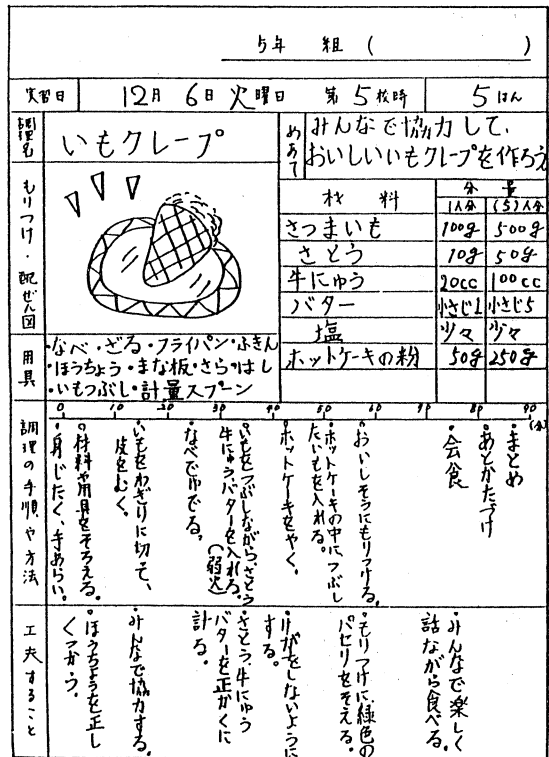 5年 組 ( )
実習日 12月 6日 火曜日 第 5 校時 5はん
調理名 いもクレープ
めあて みんなで協力して、
おいしいいもクレープを作ろう
もりつけ・配ぜん図
材料 分量
1人分 (5)人分
さつまいも 100g 500g
さとう 10g 50g
牛にゅう 20cc 100cc
バター 小さじ1 小さじ5
塩 少々 少々
ホットケーキの粉 50g 250g
用具
・なべ・ざる・フライパン・ふきん
・ほうちょう・まな板・さら・はし
・いもつぶし・計量スプーン
調理の手順や方法
0 10 20 30 40 50 60 70 80 90 (分)
・身じたく、手あらい。
・材料や用具をそろえる。
・いもをわぎりに切って、
皮をむく。
・なべでゆでる。
・いもをつぶしながら、さとう
牛にゅう、バターを入れる。
(弱火)
・ホットケーキをやく。
・ホットケーキの中に、つぶし
たいもを入れる。
・おいしそうにもりつける。
・会食
・あとかたづけ
・まとめ
工夫すること
・ほうちょうを正し
くつかう。
・みんなで協力する。
・さとう、牛にゅう
バターを正かくに
計る。
・けがをしないように
する。
・もりつけに緑色の
パセリをそえる。
・みんなで楽しく
話ながら食べる。